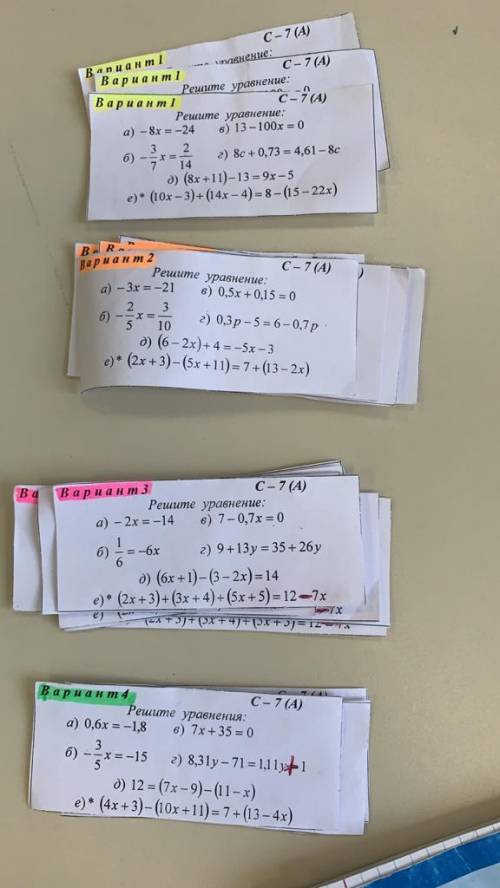 Вариант1 С – 7 (А)
уравнение:
Вариант1 С – 7 (А)
Решите уравнение:
Вариант1 С – 7 (А)
Решите уравнение:
а) −8x = −24 в) 13−100x = 0
б) −3/7 x = 2/14 г) 8c + 0,73 = 4,61−8c
д) (8x+11)−13 = 9x−5
е)* (10x−3)+(14x−4) = 8−(15−22x)
Вариант2 С – 7 (А)
Решите уравнение:
а) −3x = −21 в) 0,5x + 0,15 = 0
б) −2/5 x = 3/10 г) 0,3p − 5 = 6 − 0,7p
д) (6−2x)+4 = −5x−3
е)* (2x+3)−(5x+11) = 7+(13−2x)
Ва
Вариант3 С – 7 (А)
Решите уравнение:
а) −2x = −14 в) 7 − 0,7x = 0
б) 1/6 = −6x г) 9+13y = 35+26y
д) (6x+1)−(3−2x) = 14
е)* (2x+3)+(3x+4)+(5x+5) = 12−7x
−7x
(2x+3)+(3x+4)+(5x+5) = 12−7x
Вариант4 С – 7 (А)
Решите уравнения:
а) 0,6x = −1,8 в) 7x + 35 = 0
б) −3/5 x = −15 г) 8,31y − 71 = 1,11y+1
д) 12 = (7x−9)−(11−x)
е)* (4x+3)−(10x+11) = 7+(13−4x)